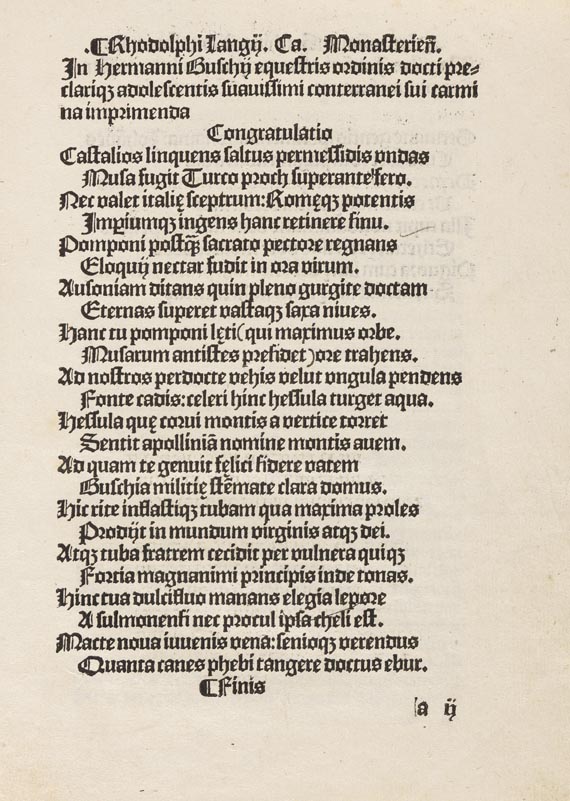 .¶Rhodolphi Langij. Ca. Monasterien̄.
In Hermanni Buschij equestris ordinis docti pre⸗
clariqꝫ adolescentis suauissimi conterranei sui carmi
na imprimenda
Congratulatio
Castalios linquens saltus permessidis vndas
Musa fugit Turco proch superante fero.
Nec valet italię sceptrum: Romęqꝫ potentis
Imꝑiumqꝫ ingens hanc retinere sinu.
Pomponi postq̄ȝ sacrato pectore regnans
Eloquij nectar fudit in ora virum.
Ausoniam ditans quin pleno gurgite doctam
Eternas superet vastaqꝫ saxa niues.
Hanc tu pomponi lęti (qui maximus orbe.
Musarum antistes presidet) ore trahens.
Ad nostros perdocte vehis velut vngula pendens
Fonte cadis: celeri hinc hessula turget aqua.
Hessula quę corui montis a vertice torret
Sentit apolliniā nomine montis auem.
Ad quam te genuit fęlici sidere vatem
Buschia militię stēmate clara domus.
Hic rite inflastiqꝫ tubam qua maxima proles
Prodijt in mundum virginis atqꝫ dei.
Atqꝫ tuba fratrem cecidit per vulnera quiqꝫ
Fortia magnanimi principis inde tonas.
Hinc tua dulcifluo manans elegia lepore
A sulmonensi nec procul ip̄sa cheli est.
Macte noua iuvenis vena: senioqꝫ verendus
Quanta canes phebi tangere doctus ebur.
¶Finis
a ij